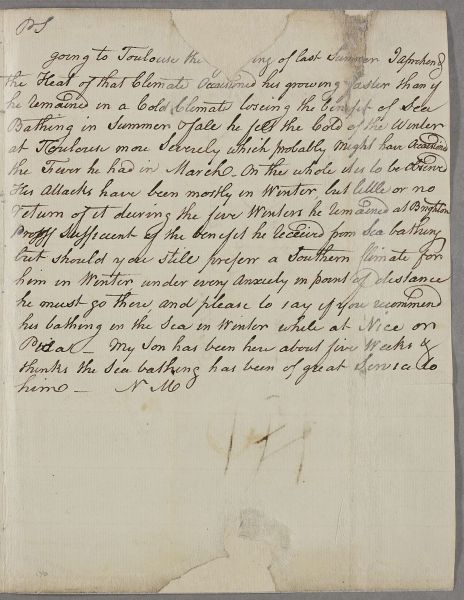 PS
going to Toulouse the ing of last Summer I aprehend
the Heat of that Climate Occasioned his growing faster than if
he remained in a Cold Climate loseing the benefit of Sea
Bathing in Summer & fale he felt the Cold of the Winter
at Toulouse more Severely which probably might have Occasiond
the Fever he had in March. On the whole it is to be
His Attacks have been mostly in Winter but little or no
return of it during the five Winters he remained at Brighton
Proof Sufficent of the benefit he received from Sea bathing
but should you still preferr a Southern Climate for
him in Winter under every Anxiety in point of distance
he must go there and please to say if you recommend
his bathing in the Sea in Winter while at Nice or
Pisa — My Son has been here about five Weeks &
thinks the Sea bathing has been of great Service to
him — N M